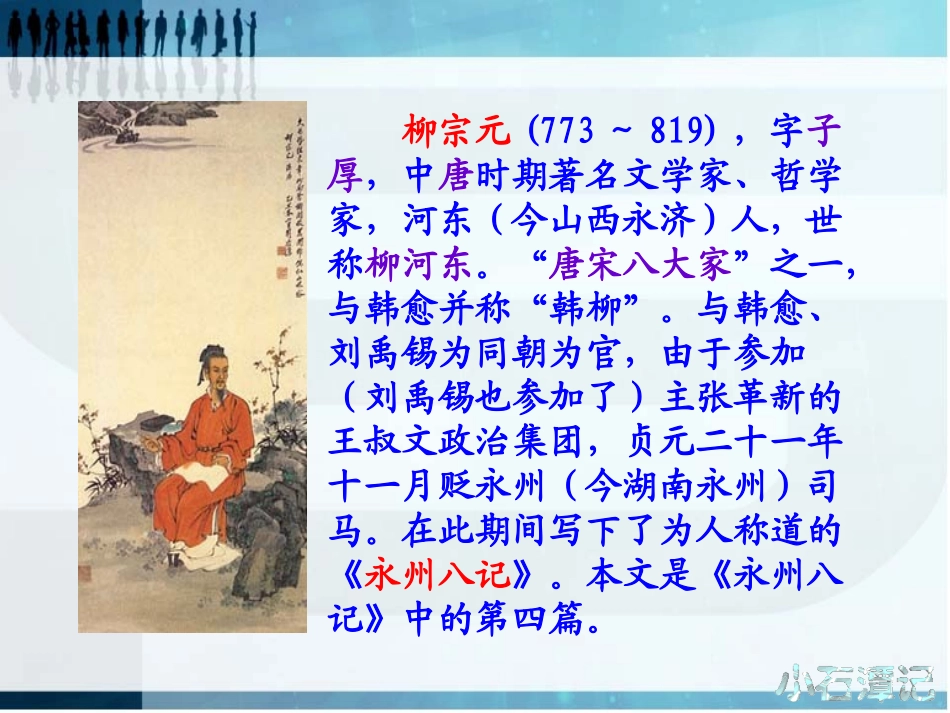 柳宗元 (773 ~ 819) ，字子
厚，中唐时期著名文学家、哲学
家，河东（今山西永济）人，世
称柳河东。“唐宋八大家”之一，
与韩愈并称“韩柳”。与韩愈、
刘禹锡为同朝为官，由于参加
（刘禹锡也参加了）主张革新的
王叔文政治集团，贞元二十一年
十一月贬永州（今湖南永州）司
马。在此期间写下了为人称道的
《永州八记》。本文是《永州八
记》中的第四篇。
小石潭记